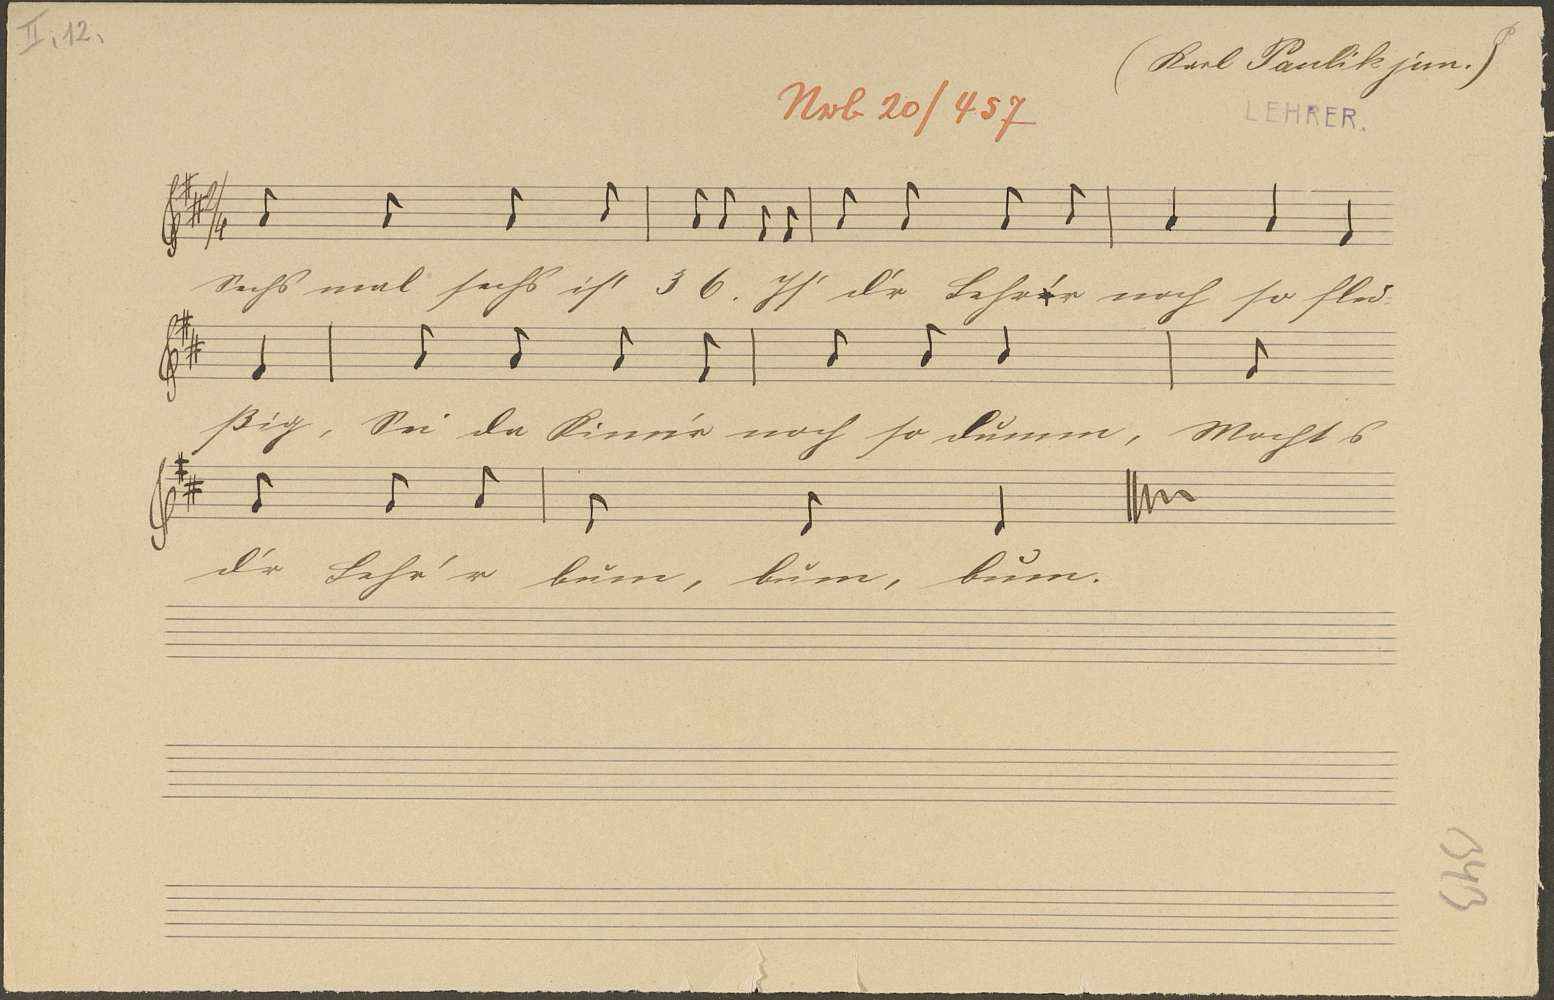 II. 12.
(Karl Paulik jun.)
Nrb 20/457
LEHRER.
2/4
Sechs mal sechs ist 36. Ist d'r Lehr'r noch so flei-
ßig, Sei da Kinn'r noch so dumm, Macht s
d'r Lehr'r bum, bum, bum.